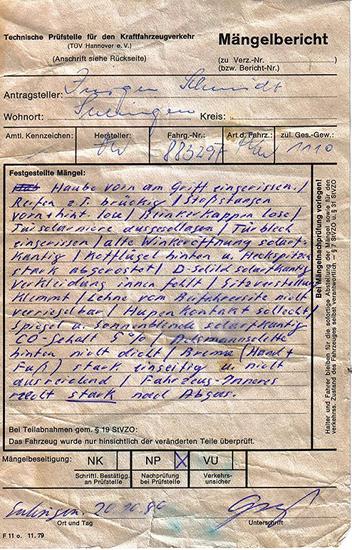 Technische Prüfstelle für den Kraftfahrzeugverkehr
(TÜV Hannover e.V.)
(Anschrift siehe Rückseite)
Mängelbericht
(zu Verz.-Nr.)
(bzw. Bericht-Nr.)
Antragsteller: Jürgen Schmidt
Wohnort: Sulingen Kreis:
Amtl. Kennzeichen: Hersteller: VW Fahrg.-Nr.: Art d. Fahrz.: Pkw zul. Ges.-Gew.: 1110
Festgestellte Mängel:
Haube vorn am Griff eingerissen /
Reifen z.T. brüchig / Stoßstangen
vorn + hint lose / Blinkerkappen lose /
Türscharniere ausgeschlagen / Türblech
eingerissen / alte Winkeröffnung scharf-
kantig / Kotflügel hinten u. Heckspitze
stark abgerostet / D-Schild scharfkantig
Verkleidung innen fehlt / Sitzverstellung
klemmt / Lehne vom Beifahrersitz nicht
verriegelbar / Hupenkontakt schlecht /
Spiegel u. Sonnenblende scharfkantig
CO-Gehalt 5% /
hinten nicht dicht / Bremse (Hand +
Fuß) stark einseitig u. nicht
ausreichend / Fahrzeug-Inneres
riecht stark nach Abgas.
Bei Mängelnachprüfung vorlegen!
Halter und Fahrer bleiben für die sofortige Abstellung der Mängel sowie für den
verkehrs- Zustand des Fahrzeuges selbst verantwortlich – § 7 StVG und § 31 StVZO
Bei Teilabnahmen gem. § 19 StVZO:
Das Fahrzeug wurde nur hinsichtlich der veränderten Teile überprüft.
Mängelbeseitigung: NK NP X VU
Schriftl. Bestätigg. an Prüfstelle
Nachprüfung bei Prüfstelle
Verkehrs-unsicher
Sulingen, 20.10.86
Ort und Tag Unterschrift
F 11 o. 11.79